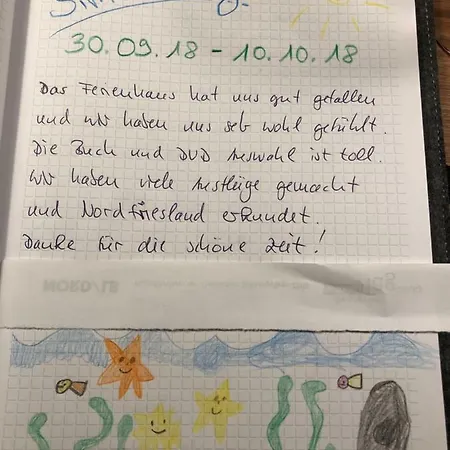 30.09.18 - 10.10.18
Das Ferienhaus hat uns gut gefallen
und wir haben uns seh wohl gefühlt.
Die Buch und DVD Auswahl ist toll.
Wir haben viele Ausflüge gemacht
und Nordfriesland erkundet.
Danke für die schöne Zeit!